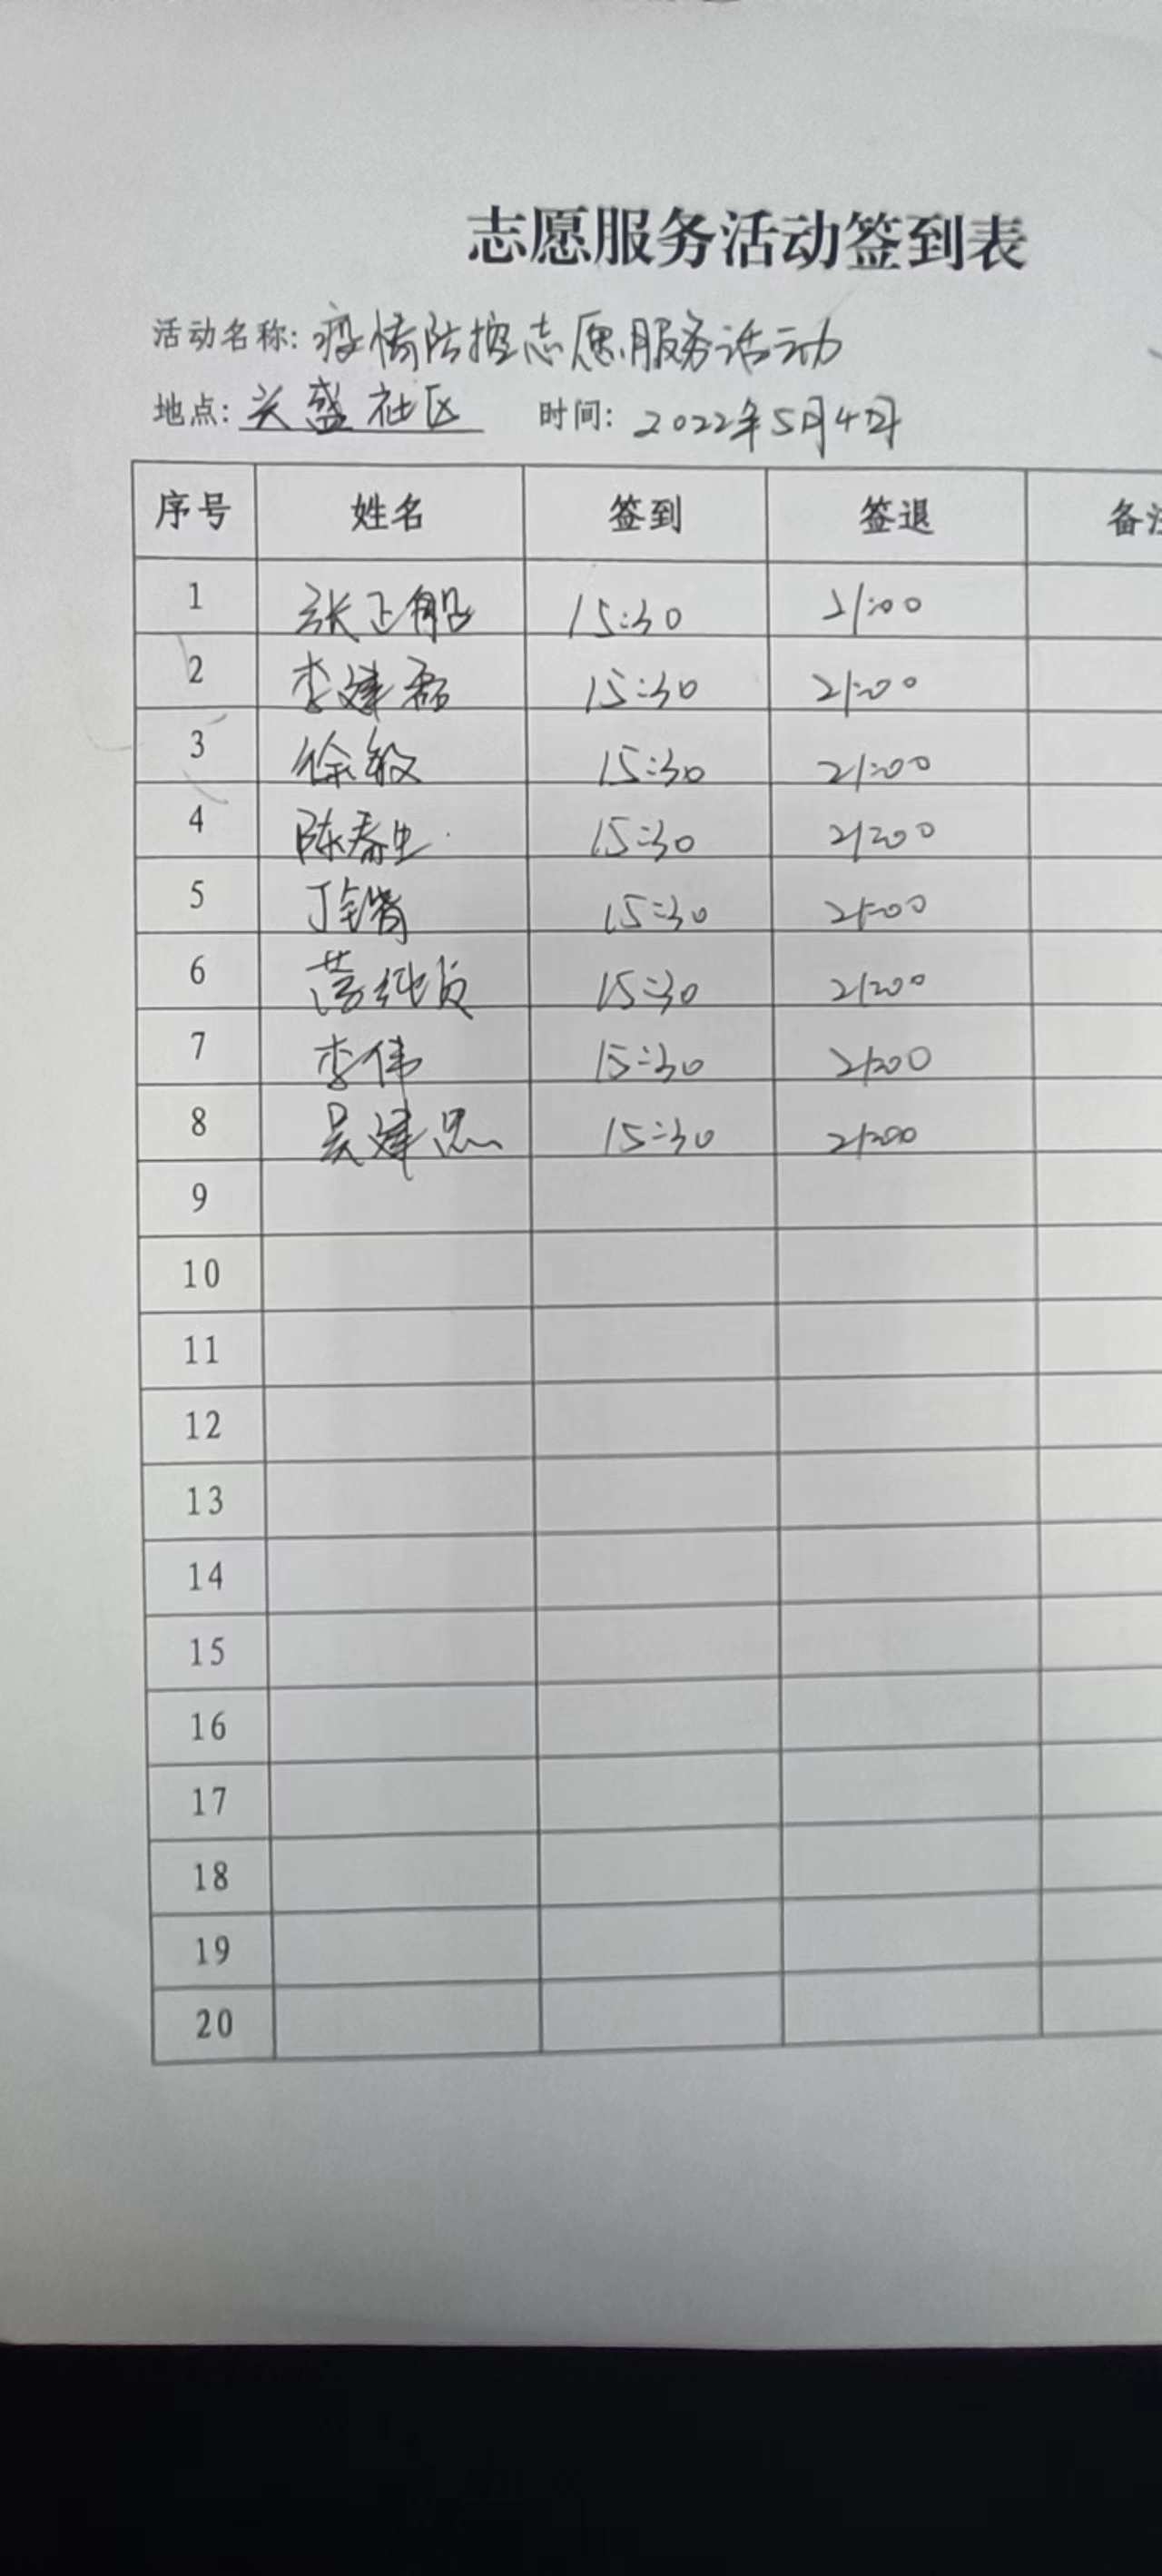 志愿服务活动签到表
活动名称: 疫情防控志愿服务活动
地点: 兴盛社区 时间: 2022年5月4日
序号 姓名 签到 签退 备注
1 张正船 15:30 21:00
2 李建磊 15:30 21:00
3 徐敏 15:30 21:00
4 陈春生 15:30 21:00
5 丁 15:30 21:00
6 15:30 21:00
7 李伟 15:30 21:00
8 吴建忠 15:30 21:00
9
10
11
12
13
14
15
16
17
18
19
20